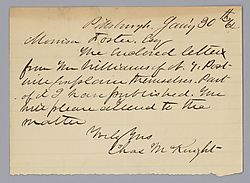 Pittsburgh, Jany 30th/61
Morrison Foster, Esq
The enclosed letters
from Mr Williams of N. Y. Post-
-ville explain themselves. Part
of it I have published. You
will please attend to the
matter
Truly Yrs
Chas McKnight